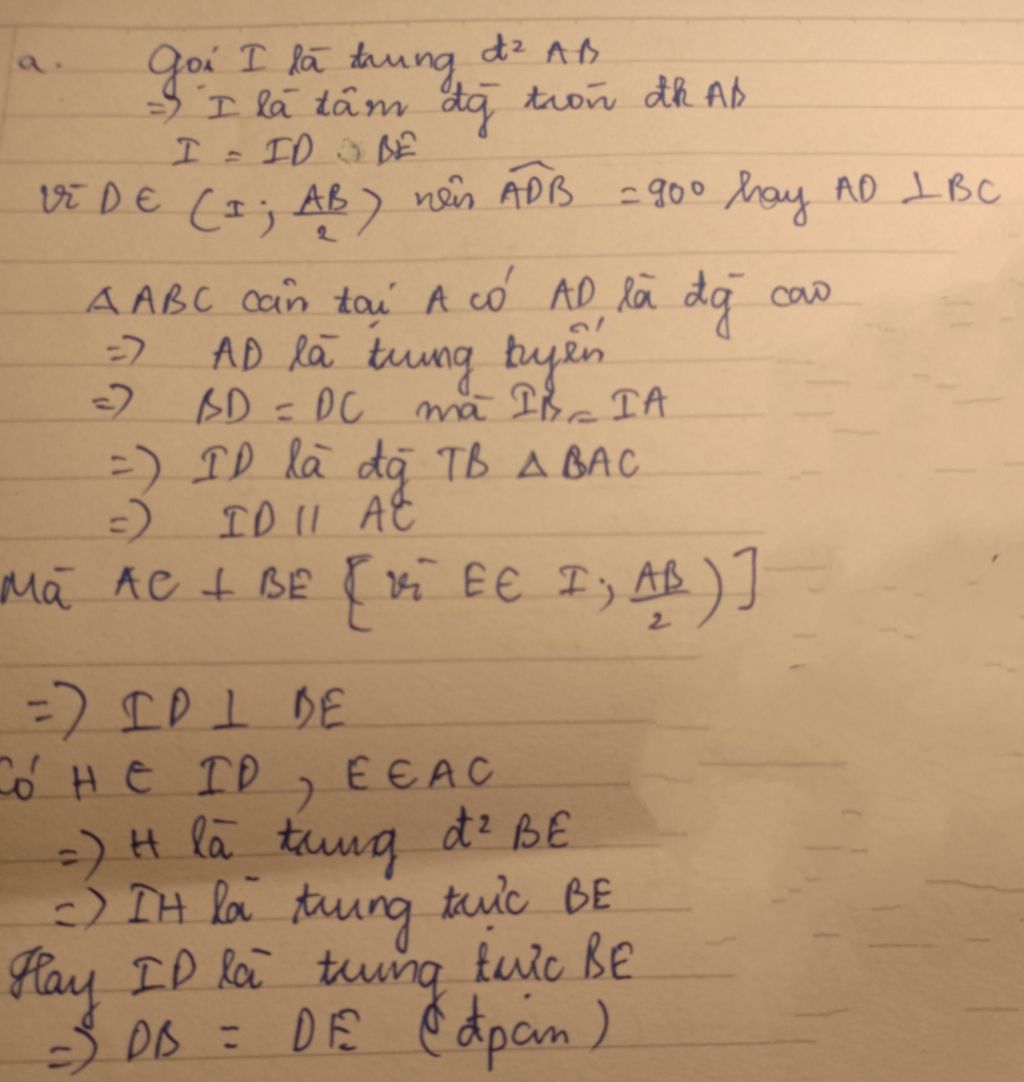 a. Gọi I là trung đ² AB
=> I là tâm đg̀ tròn đk AB
I = ID BE
Vì D ∈ (I; AB/2) nên ADB = 90° hay AD ⊥ BC
Δ ABC cân tại A có AD là đg̀ cao
=> AD là trung tuyến
=> BD = DC mà IB = IA
=> ID là đg̀ TB Δ BAC
=> ID // AC
Mà AC ⊥ BE [vì E ∈ I; AB/2)]
=> ID ⊥ BE
Có H ∈ ID, E ∈ AC
=> H là trung đ² BE
=> IH là trung trực BE
Hay ID là trung trực BE
=> DB = DE (đpcm)